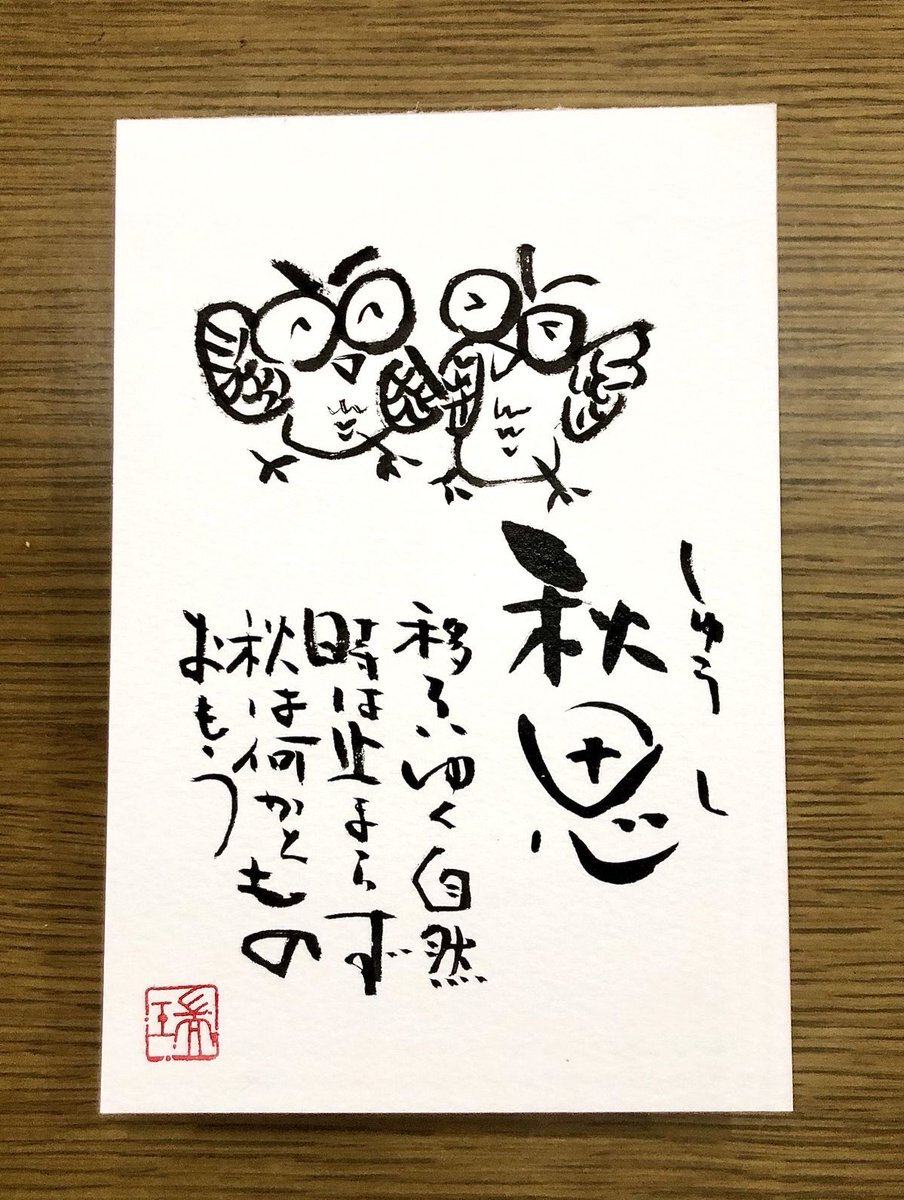 しゅうし
秋思
移ろいゆく自然
時は止まらず
秋は何かともの
おもう